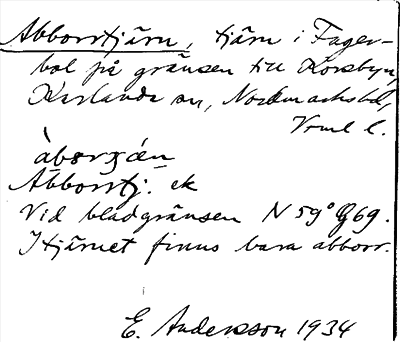 Abborrtjärn, tjärn i Fager-
bol på gränsen till Korsbyn,
Karlanda sn, Nordmarks hd,
Vrml l.
àbərʒän
Abborrtj. ek
Vid bladgränsen N 59° 69.
I tjärnet finns bara abborr.
E. Andersson 1934